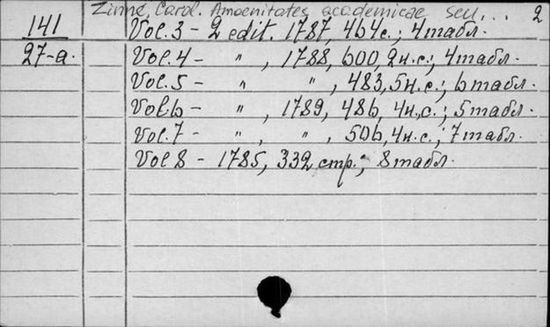 Zinné, Carol. Amoenitates academicae seu... 2
141 Vol.3 - 2 edit. 1787, 464с.; 4табл.
27-a. Vol.4 - " , 1788, 600, 2н.с.; 4табл.
Vol.5 - " " , 483, 5н.с.; 6табл.
Vol.6 - " , 1789, 486, 4н.с.; 5табл.
Vol.7 - " , " , 506, 4н.с.; 7табл.
Vol 8 - 1785, 332 стр.; 8табл.